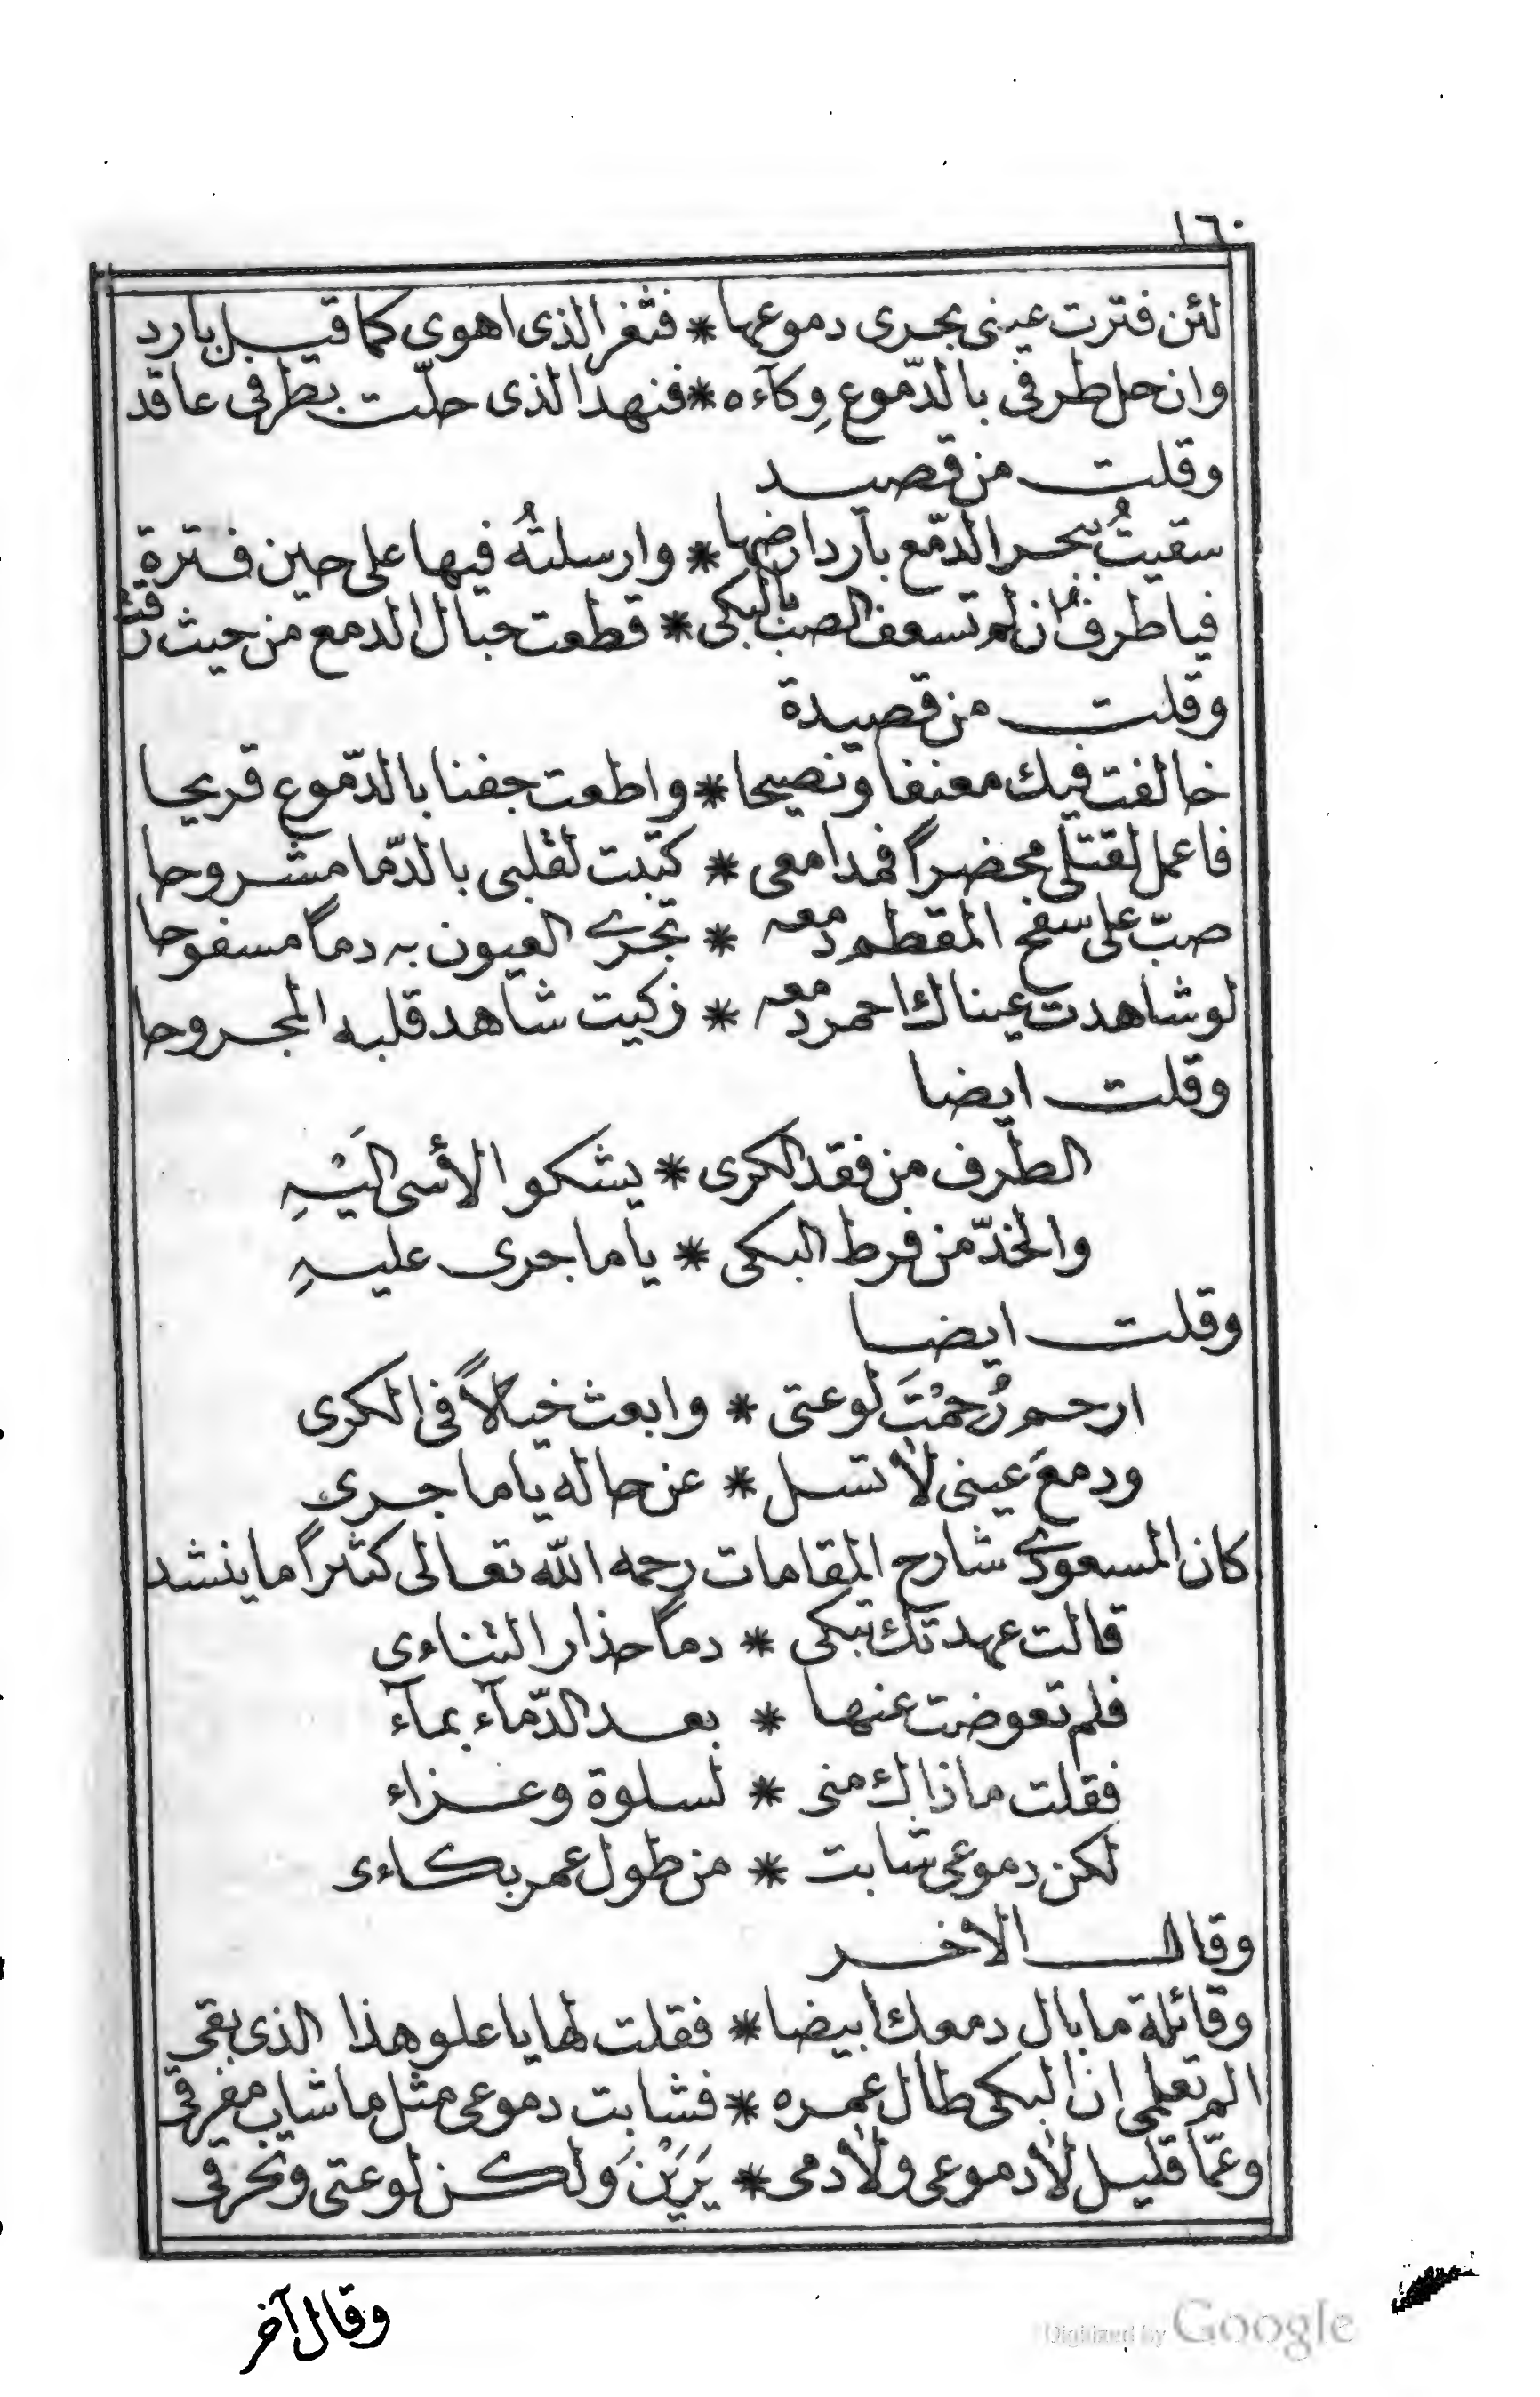 ١٦٠
لئن فترت عينى بجرى دموعها * فثغر الذى اهوى كما قيل بارد
وان حل طرفى بالدّموع وِكآءه * فنهد الذى حلّت بطرفى عاقد
وقلت من قصيد
سقيتُ بحر الدّمع بآرد ارضها * وارسلتُه فيها على حين فترة
فيا طرف ان لم تسعف الصب بالبكى * قطعت حبال الدمع من حيث رقت
وقلت من قصيدة
خالفت فيك معنفا ونصيحا * واطعت جفنا بالدّموع قريحا
فاعمل لقتلى محضراً فمدامعى * كتبت لقلبى بالدّما مشروحا
صبّ على سفح المقطم دمعه * تجرى العيون به دماً مسفوحا
لو شاهدت عيناك احمر دمعه * زكيت شاهد قلبه المجروحا
وقلت ايضا
الطّرف من فقد الكرى * يشكو الأسى اليَْهِ
والخدّ من فرط البكى * ياما جرى عليهِ
وقلت ايضا
ارحم رُحمْتَ لوعتى * وابعث خيالاً فى الكرى
ودمعَ عينى لا تسل * عن حاله ياما جرى
كان المسعودى شارح المقامات رحمه الله تعالى كثيراً ما ينشد
قالت عهدتك تبكى * دماً حذار التناءى
فلم تعوضت عنها * بعد الدّمآء بمآء
فقلت ما ذاك منى * لسلوة وعزاء
لكن دموعى شابت * من طول عمر بكاءى
وقال الاخر
وقائلة ما بال دمعك ابيضا * فقلت لها يا علو هذا الذى بقى
الم تعلمى ان البكى طال عمره * فشابت دموعى مثل ما شاب مفرقى
وعمّا قليل لا دموعى ولا دمى * يَرَيْنَ ولكن لوعتى وتحرقى
وقال آخر
Digitized by Google